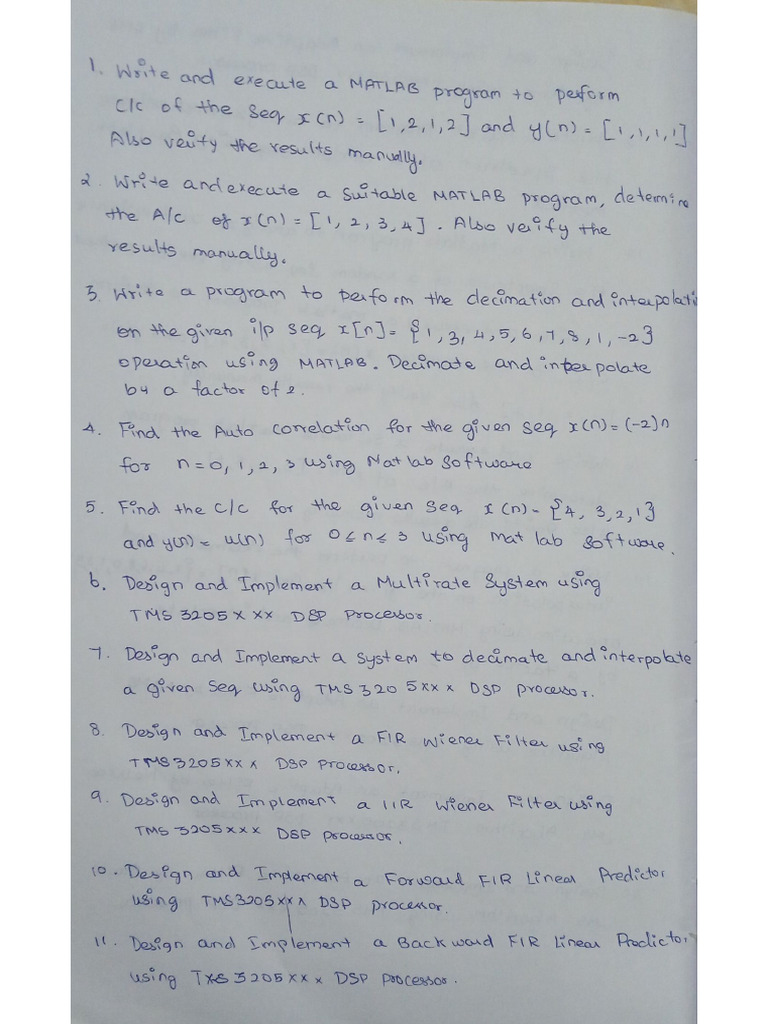 1. Write and execute a MATLAB program to perform
C/C of the Seq x(n) = [1,2,1,2] and y(n) = [1,1,1,1]
Also veify the results manually.
2. Write and execute a Suitable MATLAB program, determine
the A/c of x(n) = [1, 2, 3, 4]. Also veify the
results manually.
3. Write a program to perform the decimation and interpolati
on the given i/p seq x[n]= {1, 3, 4, 5, 6, 7, 8, 1, -2}
operation using MATLAB. Decimate and interpolate
by a factor of 2.
4. Find the Auto Correlation for the given seq x(n) = (-2)n
for n=0, 1, 2, 3 using Matlab Software
5. Find the C/C for the given Seq x(n)= {4, 3, 2, 1}
and y(n) = u(n) for 0 ≤ n ≤ 3 using Mat lab Software.
6. Design and Implement a Multirate System using
TMS 3205 X XX DSP Processor.
7. Design and Implement a system to decimate and interpolate
a given Seq using TMS 320 5XX X DSP processor.
8. Design and Implement a FIR Wiener Filter using
TMS 3205 XX X DSP processor.
9. Design and Implement a IIR Wiener Filter using
TMS 3205XXX DSP processor.
10. Design and Implement a Forward FIR Linear Predictor
using TMS3205XXX DSP processor.
11. Design and Implement a Backward FIR Linear Predictor
using TXS 3205 XX X DSP processor.